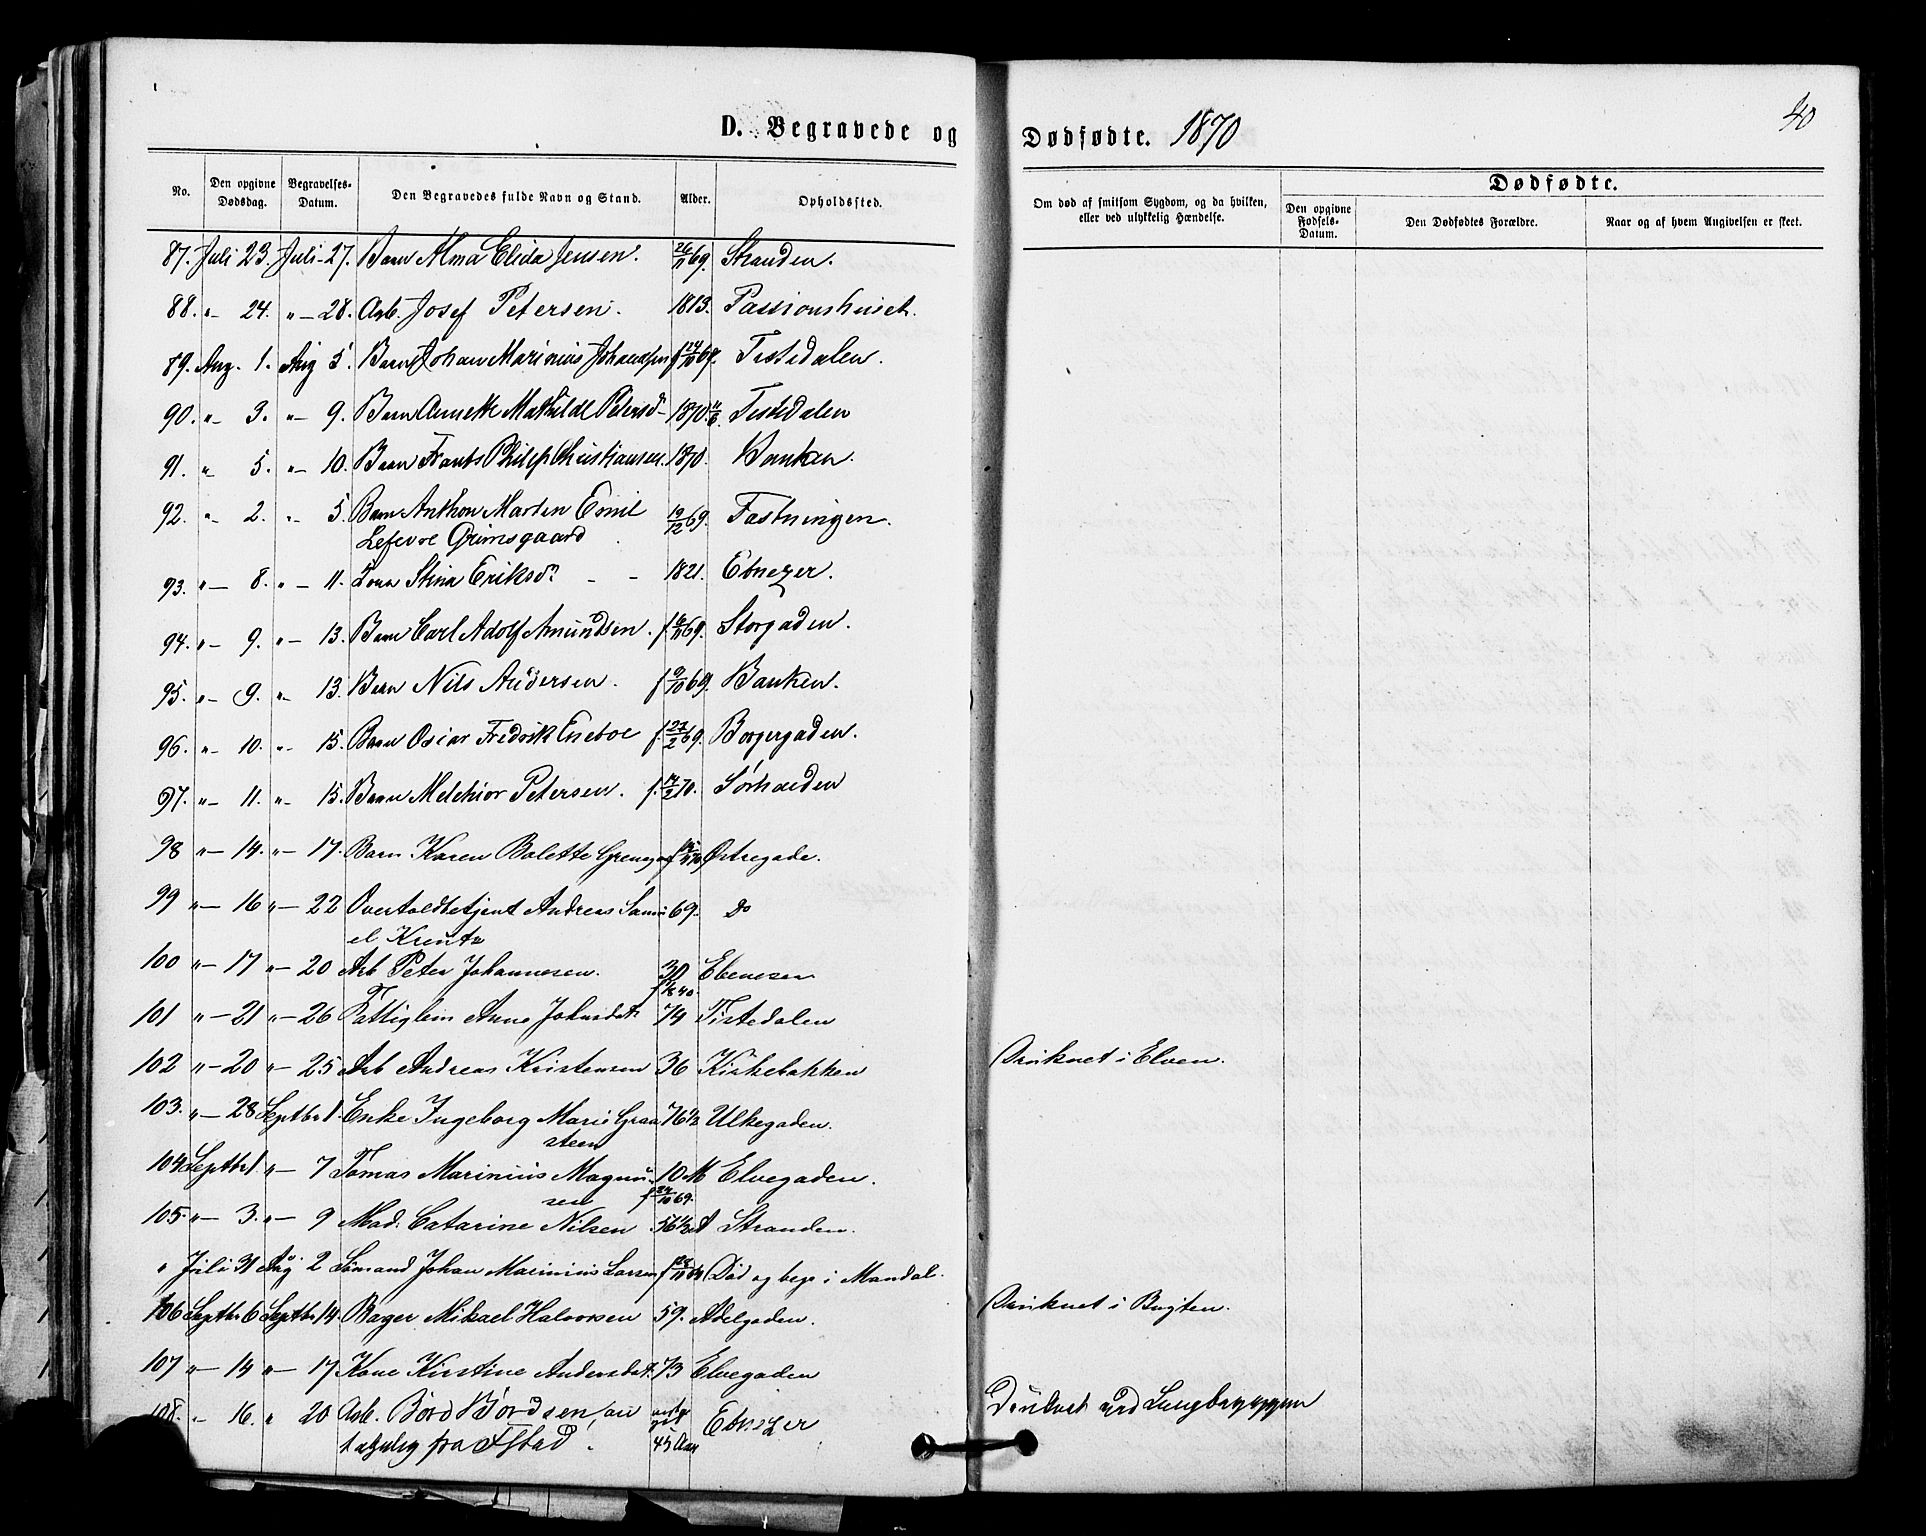 D. Begravede og Dødfødte. 1870
40
No. Den opgivne Dødsdag. Begravelses-Datum. Den Begravedes fulde Navn og Stand. Alder. Opholdssted. Om død af smitsom Sygdom, og da hvilken, eller ved ulykkelig Hændelse. Dødfødte. Den opgivne Fødsels-Datum. Den Dødfødtes Forældre. Naar og af hvem Angivelsen er skeet.
87. Juli 23. Juli - 27. Barn Alma Elida Jensen. 26/11 69. Stranden.
88. „ - 24. „ - 28. Arb. Josef Petersen. 1813. Passionshuset.
89. Aug. 1. Aug 5. Barn Johan Marinius Johansen f 24/10 69. Tistedalen.
90. „ - 3. „ - 9. Barn Annette Mathilde Petersd- 1870 11/6. Tistedalen
91. „ - 5. „ - 10. Barn Frants Philip Christiansen. 1870. Banken.
92. „ - 2. „ - 5. Barn Anthon Marten Emil 19/12 69. Fastningen.
Lefevre Grimsgaard
93. „ - 8. „ - 11. Kona Stina Eriksd. - - 1821. Ebnezer.
94. „ - 9. „ - 13. Barn Carl Adolf Amundsen. f. 6/11 69. Storgaden.
95. „ - 9. „ - 13. Barn Nils Andersen. f 9/10 69. Banken.
96. „ - 10. „ - 15. Barn Oscar Fredrik Eneboe f. 27/2 69. Borgergaden.
97. „ - 11. „ - 15. Barn Melchior Petersen. f. 14/2 70. Sørhalden
98 „ - 14. „ - 17. Barn Karen Bolette Østregade.
99 „ - 16 „ - 22 Overtoldbetjent Andreas Samu 69. Do
el Krentz
100 „ - 17 „ - 20 Arb Peter Johannesen. 30 Ebenezer
101 „ - 21 „ - 26 Fattiglem Anne Johnsdat. 74 Tistedalen
102 „ - 20 „ - 25 Arb Andreas Kristensen 36 Kirkebakken Druknet i Elven.
103. „ - 28 Septbr 1. Enke Ingeborg Marie Graa 76 1/2 Ulkegaden.
steen
104 Septbr 1. „ - 7 Tomas Marinius Magnu 10 M Elvegaden.
sen f 24/10 69.
105. „ - 3. „ - 9 Mad. Catarine Nilsen 56 1/2 A Stranden.
„ Juli 31 Aug 2 Sømand Johan Marinius Larsen Død og begr i Mandal.
106 Septbr 6 Septbr 14. Bager Mikael Halvorsen 59. Adelgaden. Druknet i Bugten.
107 „ - 14 „ - 17 Kone Kirstine Andersdat. 73 Elvegaden
108. „ 16. „ 20 Arb. Børd Børdsen, Ebnezer Druknet ved Langbryggen
fra Ystad. 45 Aar